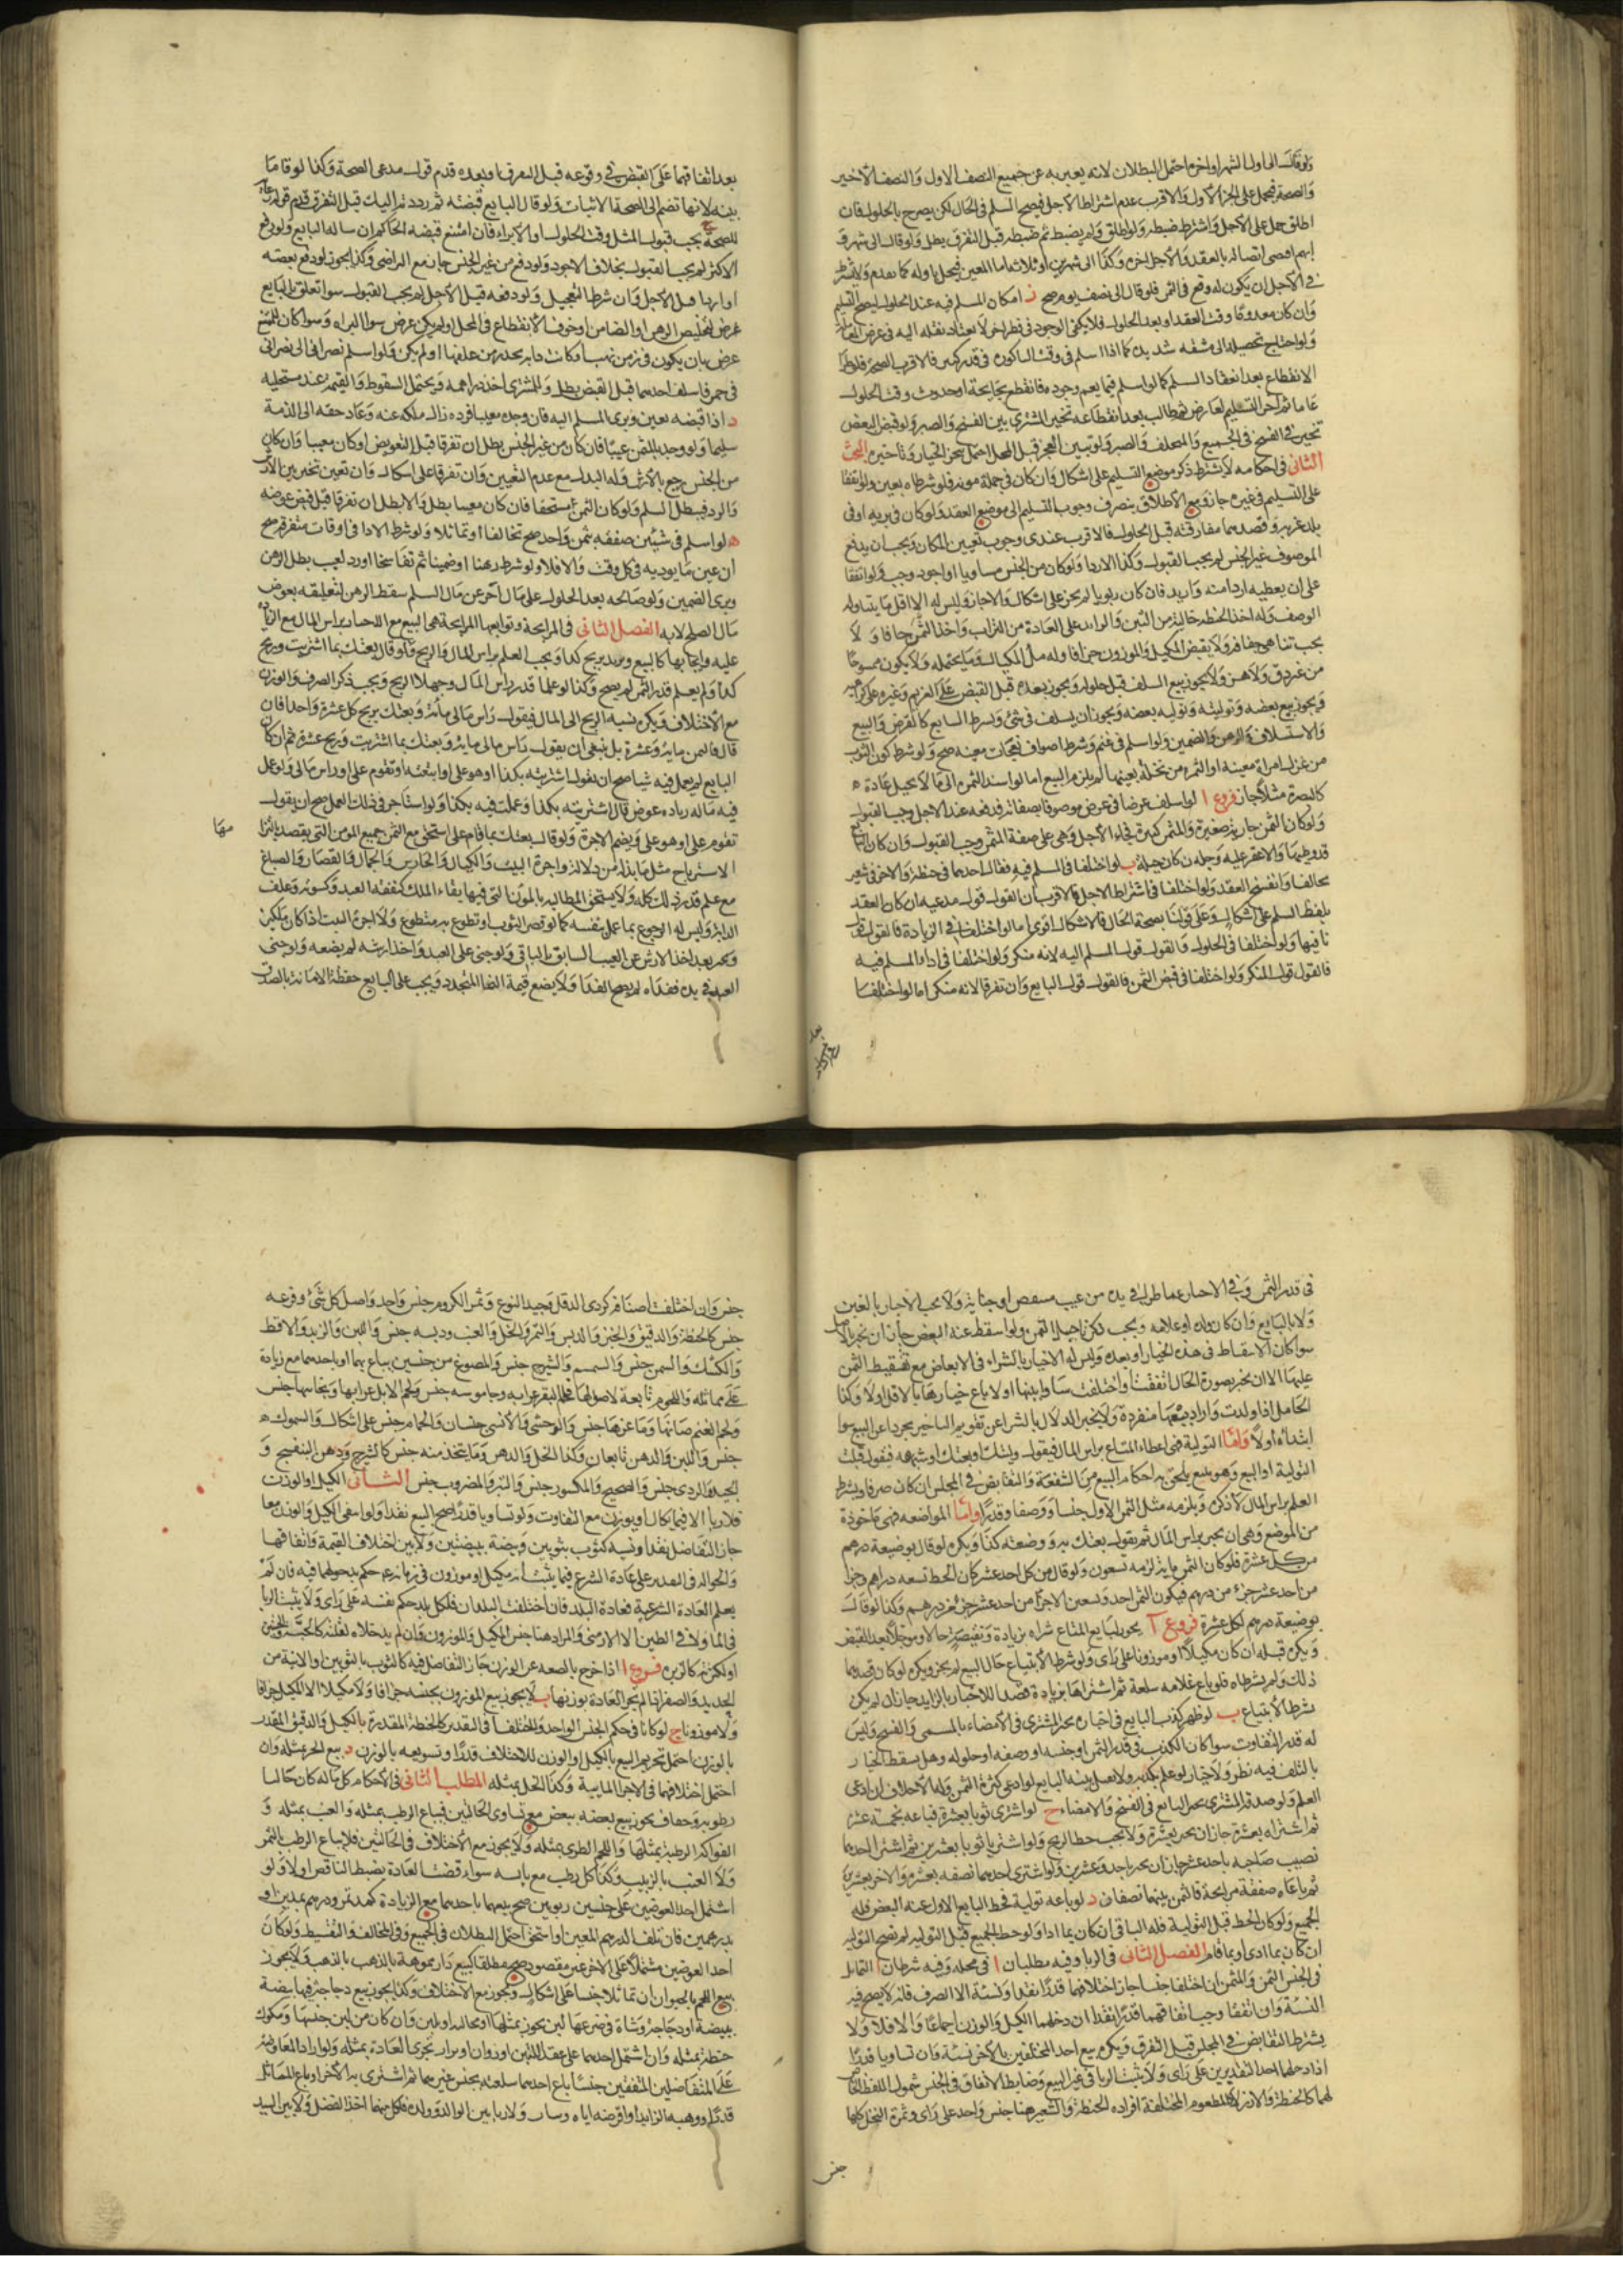 ولو قال الى اول الشهر او اخره احتمل البطلان لانه يعبر به عن جميع النصف الاول والنصف الاخير
والصحة فيحمل على الجزء الاول والاقرب عدم اشتراط الاجل فيصح السلم في الحال لكن يصرح بالحلول فان
اطلق حمل على الاجل واشترط ضبطه ولو اطلق ولم يضبط ثم ضبطه قبل التفرق بطل ولو قال الى شهر و
ابهم اقتضى اتصاله بالعقد والاجل اخره وكذا الى شهرين او ثلاثة اما المعين فيحل باوله كما تقدم ولا يشترط
في الاجل ان يكون له وقع في الثمن فلو قال الى نصف يوم صح ز امكان المسلم فيه عند الحلول ليصح التسليم
وان كان معدوما وقت العقد او بعد الحلول فلا يكفي الوجود في قطر اخر لا يعتاد نقله اليه في غرض المعاملة
ولو احتاج تحصيله الى مشقة شديدة كما اذا اسلم في وقت الباكورة في قدر كثير فالاقرب الصحة فلو طرأ
الانقطاع بعد انعقاد السلم كما لو اسلم فيما يعم وجوده فانقطع بجايحة او حدوث وقت الحلول
عاما ثم اخر التسليم لعارض ثم طالب بعد انقطاعه تخير المشتري بين الفسخ والصبر ولو قبض البعض
تخير في الفسخ في الجميع والمتخلف والصبر ولو تبين العجز قبل المحل احتمل تنجز الخيار وتأخيره البحث
الثاني في احكامه لا يشترط ذكر موضع التسليم على اشكال وان كان في حمله مونة فلو شرطاه تعين ولو اتفقا
على التسليم في غيره جاز ومع الاطلاق ينصرف وجوب التسليم الى موضع العقد ولو كان في برية او في
بلد غربة وقصدهما مفارقته قبل الحلول فالاقرب عندي وجوب تعيين المكان ويجب ان يدفع
الموصوف غير الجنس لم يجب القبول وكذا الاردا ولو كان من الجنس مساويا او اجود وجب ولو اتفقا
على ان يعطيه اردا منه وازيد فان كان ربويا لم يجز على اشكال والا جاز وليس له الا اقل ما يتناوله
الوصف وله اخذ الحنطة خالية من التبن والزائد على العادة من التراب واخذ التمر جافا ولا
يجب تناهي جفافه ولا يقبض المكيل والموزون جزافا وله ملء المكيال وما يحتمله ولا يكون ممسوحا
من غير دق ولا هز ولا يجوز بيع السلف قبل حلوله ويجوز بعده قبل القبض على الغريم وغيره على كراهية
ويجوز بيع بعضه وتوليته وتولية بعضه ويجوز ان يسلف في شئ ويشرط السايغ كالقرض والبيع
والاستسلاف والرهن والضمين ولو اسلم في غنم وشرط اصواف نعجات معينة صح ولو شرط كون الثوب
من غزل امرأة معينة او الثمرة من نخلة بعينها لم يلزم البيع اما لو اسند الثمرة الى ما لا يحيل عادة ه
كالبصرة مثلا جاز فروع ا لو اسلف عرضا في عرض موصوفا بصفاته فدفعه عند الاجل وجب القبول
ولو كان الثمن جارية صغيرة والمثمن كبيرة فجاء الاجل وهي على صفة المثمن وجب القبول وان كان البايع
قد وطئها ولا عقر عليه وحيلة ان كان حيلة ب لو اختلفا في المسلم فيه فقال احدهما في حنطة والاخر في شعير
تحالفا وانفسخ العقد ولو اختلفا في اشتراط الاجل فالاقرب ان القول قول مدعيه ان كان العقد
بلفظ السلم على اشكال وعلى قولنا بصحة الحال فالاشكال اقوى اما لو اختلفا في الزيادة فالقول قول
نافيها ولو اختلفا في الحلول فالقول قول المسلم اليه لانه منكر ولو اختلفا في اداء المسلم فيه
فالقول قول المنكر ولو اختلفا في قبض الثمن فالقول قول البايع وان تفرقا لانه منكر اما لو اختلفا
بعد اتفاقهما على القبض في وقوعه قبل التفرق او بعده قدم قول مدعي الصحة وكذا لو اقاما
بينة لانها تضم الى الصحة الاثبات ولو قال البايع قبضته ثم رددته اليك قبل التفرق قدم قوله رعاية
للصحة ج يجب قبول المثل وقت الحلول او الابراء فان امتنع قبضه الحاكم ان ساله البايع ولو دفع
الاكثر لم يجب القبول بخلاف الاجود ولو دفع من غير الجنس جاز مع التراضي وكذا يجوز لو دفع بعضه
او اردا قبل الاجل وان شرطا التعجيل ولو دفعه قبل الاجل لم يجب القبول سوا تعلق بالبايع
غرض لتخليص الرهن او الضامن او خوف الانقطاع في المحل او لم يكن غرض سوا البراءة وسوا كان للممتنع
غرض بان يكون في زمن نهب او كانت دابة يحذر من علفها او لم يكن ولو اسلم نصراني الى نصراني
في خمر فاسلم احدهما قبل القبض بطل وللمشتري اخذ دراهمه ويحتمل السقوط والقيمة عند مستحليه
د اذا قبضه تعين وبرئ المسلم اليه فان وجده معيبا فرده زال ملكه عنه وعاد حقه الى الذمة
سليما ولو وجد بالثمن عيبا فان كان من غير الجنس بطل ان تفرقا قبل التعويض او كان معينا وان كان
من الجنس رجع بالارش وله البدل مع عدم التعيين وان تفرقا على اشكال وان تعين تخير بين الارش
والرد فيبطل السلم ولو كان الثمن مستحقا فان كان معينا بطل والا بطل ان تفرقا قبل قبض عوضه
ه لو اسلم في شيئين صفقة بثمن واحد صح تخالفا او تماثلا ولو شرط الادا في اوقات متفرقة صح
ان عين ما يوديه في كل وقت والا فلا ولو شرط رهنا او ضمينا ثم تفاسخا او رد لعيب بطل الرهن
وبرئ الضمين ولو صالحه بعد الحلول على مال آخر عن مال السلم سقط الرهن لتعلقه بعوض
مال الصلح لا به الفصل الثاني في المرابحة وتوابعها المرابحة هي البيع مع الاخبار براس المال مع الزيادة
عليه وايجابها كالبيع ويزيد بربح كذا ويجب العلم براس المال والربح فلو قال بعتك بما اشتريت وربح
كذا ولم يعلم قدر الثمن لم يصح وكذا لو علما قدر راس المال وجهلا الربح ويجب ذكر الصرف والوزن
مع الاختلاف ويكره نسبة الربح الى المال فيقول راس مالي مائة وبعتك بربح كل عشرة واحدا فان
قال فالثمن مائة وعشرة بل ينبغي ان يقول راس مالي مائة وبعتك بما اشتريت وربح عشرة ثم ان كان
البايع لم يعمل فيه شيئا صح ان يقول اشتريته بكذا او هو علي او ابتعته او تقوم علي او راس مالي ولو عمل
فيه ماله زيادة عوض قال اشتريته بكذا وعملت فيه بكذا ولو استاجر في ذلك العمل صح ان يقول
تقوم علي او هو علي ويضم الاجرة ولو قال بعتك بما قام علي استحق مع الثمن جميع المؤن التي يقصد بالتزامها
الاسترباح مثل ما بذله من دلالة واجرة البيت والكيال والحارس والحمال والقصار والصباغ
مع علم قدر ذلك كله ولا يستحق المطالبة بالمؤن التي فيها بقاء الملك كنفقة العبد وكسوته وعلف
الدابة وليس له الرجوع بما عمل بنفسه كما لو قصر الثوب او تطوع به متطوع ولا اجرة البيت اذا كان ملكه
ويخبر بعد اخذ الارش عن العيب السابق بالباقي ولو جنى على العبد واخذ ارشه لم يضعه ولو جنى
العبد في يده ففداه لم يضم الفدا ولا يضع قيمة النما المتجدد ويجب على البايع حفظ الامانة بالصدق
في قدر الثمن وفي الاخبار عما طرأ في يده من عيب منقص او جناية ولا يجب الاخبار بالغبن
ولا بالبايع وان كان ولده او غلامه ويجب ذكر تاجيل الثمن ولو اسقط عنه البعض جاز ان يخبر بالاصل
سوا كان الاسقاط في مدة الخيار او بعده وليس له الاخبار بالشراء في الابعاض مع تقسيط الثمن
عليها الا ان يخبر بصورة الحال اتفقت او اختلفت ساوا بينها او لا باع خيارها بالاقل او لا وكذا
الحامل اذا ولدت واراد بيعها منفردة ولا يخبر الدلال بالشرا عن تقويم التاجر مجردا عن البيع سوا
ابتداه اولا واما التولية فهي اعطاء المتاع براس المال فيقول وليتك او بعتك او شبهه فيقول قبلت
التولية او البيع وهو بيع يلحق به احكام البيع من الشفعة والتقابض في المجلس ان كان صرفا ويشترط
العلم براس المال لا ذكره ويلزمه مثل الثمن الاول جنسا ووصفا وقدرا واما المواضعة فهي ماخوذة
من الوضع وهي ان يخبر براس المال ثم يقول بعتك به ووضيعته كذا ويكره لو قال بوضيعة درهم
من كل عشرة فلو كان الثمن مائة لزمه تسعون ولو قال من كل احد عشر كان الحط تسعة دراهم وجزءا
من احد عشر جزء من درهم فيكون الثمن احد وتسعين الا جزءا من احد عشر جزء من درهم وكذا لو قال
بوضيعة درهم لكل عشرة فروع آ يجوز لبايع المتاع شراه بزيادة ونقيصة حالا ومؤجلا بعد القبض
ويكره قبله ان كان مكيلا او موزونا على رأي ولو شرط الابتياع حال البيع لم يجز ويكره لو كان قصدهما
ذلك ولم يشرطاه فلو باع غلامه سلعة ثم اشتراها بزيادة قصدا للاخبار بالزايد جاز ان لم يكن
شرط الابتياع ب لو ظهر كذب البايع في اخباره تخير المشتري في الامضاء بالمسمى والفسخ وليس
له قدر التفاوت سوا كان الكذب في قدر الثمن او جنسه او وصفه او حلوله وهل يسقط الخيار
بالتلف فيه نظر ولا خيار لو علم بكذبه ولا تقبل بينة البايع لو ادعى كثرة الثمن وله الاحلاف ان ادعى
العلم ولو صدقه المشتري تخير البايع في الفسخ والامضاء ج لو اشترى ثوبا بعشرة فباعه بخمسة عشر
ثم اشتراه بعشرة جاز ان يخبر بعشرة ولا يجب حط الربح ولو اشتريا ثوبا بعشرين ثم اشترا احدهما
نصيب صاحبه باحد عشر جاز ان يخبر باحد وعشرين ولو اشترى احدهما نصفه بعشرة والاخر بعشرين
ثم باعاه صفقة مرابحة فالثمن بينهما نصفان د لو باعه تولية فحط البايع الاول عنه البعض فله
الجميع ولو كان الحط قبل التولية فله الباقي ان كان بما ادا ولو حط الجميع قبل التولية لم تصح التولية
ان كان بما ادى او بما قام الفصل الثاني في الربا وفيه مطلبان ا في محله وفيه شرطان ا التماثل
في الجنس الثمن والمثمن ان اختلفا جنسا جاز اختلافهما قدرا نقدا ونسئة الا الصرف فانه لا يصح فيه
النسئة وان اتفقا وجب اتفاقهما قدرا نقدا ان دخلهما الكيل والوزن اجماعا والا فلا ولا
يشترط التقابض في المجلس قبل التفرق ويكره بيع احد المختلفين بالاخر نسئة وان تساويا قدرا
اذا دخلهما احد التقديرين على راي ولا يثبت الربا في غير البيع وضابط الاتفاق في الجنس شمول اللفظ الخاص
لهما كالحنطة والارز لا كالمطعوم المختلفة افراده الحنطة والشعير هنا جنس واحد على راي وثمرة النخل كلها
جنس وان اختلفت اصنافه كردي الدقل وجيد النوع وثمر الكرم جنس واحد واصل كل شئ وفرعه
جنس كالحنطة والدقيق والخبز والدبس والتمر والخل والعنب ودبسه جنس واللبن والزبد والاقط
والكشك والسمن جنس والسمسم والشيرج جنس والمصوغ من جنسين يباع بهما او باحدهما مع زيادة
على مماثله واللحوم تابعة لاصولها فلحم البقر عرابه وجاموسه جنس ولحم الابل عرابها وبخاتيها جنس
ولحم الغنم ضانها وماعزها جنس والوحشي والانسي جنسان والحمام جنس على اشكال والسموك
جنس واللبن والدهن تابعان وكذا الخل والدهن وما يتخذ منه جنس كالشيرج ودهن البنفسج و
الجيد والردى جنس والصحيح والمكسور جنس والتبر والمضروب جنس الثاني الكيل او الوزن
فلا ربا الا فيما يكال او يوزن مع التفاوت ولو تساويا قدرا صح البيع نقدا ولو انتفى الكيل والوزن معا
جاز التفاضل نقدا ونسية كثوب بثوبين وبيضة ببيضتين ولا بين اختلاف القيمة واتفاقها
والحوالة في التقدير على عادة الشرع فيما يثبت أنه مكيل او موزون في زمانه عم حكم بدخولهما فيه فان لم
يعلم العادة الشرعية فعادة البلد فان اختلفت البلدان فلكل بلد حكم نفسه على رأى ولا يثبت الربا
في الماء ولا في الطين الا الارمني والمراد هنا جنس المكيل والموزون فان لم يدخلاه لقلته كالحبة والحبتين
او لكثرته كالزبرة فروع ا اذا خرج بالصنعة عن الوزن جاز التفاضل فيه كالثوب بالثوبين والآنية من
الحديد والصفر اذا لم تجر العادة بوزنها ب لا يجوز بيع الموزون بجنسه جزافا ولا مكيلا الا المكيل جزافا
ولا موزونا ج لو كانا في حكم الجنس الواحد واختلفا في التقدير كالحنطة المقدرة بالكيل والدقيق المقدر
بالوزن احتمل تحريم البيع بالكيل او الوزن للاختلاف قدرا وتسويغه بالوزن د بيع الخبز بمثله وان
احتمل اختلافهما في الاجزا المايية وكذا الخل بمثله المطلب الثاني في الاحكام كل ماله كان حالتا
رطوبة وجفاف يجوز بيع بعضه ببعض مع تساوي الحالتين فيباع الرطب بمثله والعنب بمثله و
الفواكه الرطبة بمثلها واللحم الطري بمثله ولا يجوز مع الاختلاف في الحالتين فلا يباع الرطب بالتمر
ولا العنب بالزبيب وكذا كل رطب مع يابسه سواء قضت العادة بضبط الناقص اولا ولو
اشتمل احد العوضين على جنسين ربويين صح بيعهما باحدهما مع الزيادة كمد تمر ودرهم بمدين او
بدرهمين فان تلف الدرهم المعين او استحق احتمل البطلان في الجميع وفي المخالف والتقسيط ولو كان
احد العوضين مشتملا على الاخر غير مقصود صح مطلقا كبيع دار مموهة بالذهب بالذهب ولا يجوز
بيع اللحم بالحيوان ان تماثلا جنسا على اشكال ويجوز مع الاختلاف وكذا يجوز بيع دجاجة فيها بيضة
ببيضة او دجاجة وشاة في ضرعها لبن يجوز بمثلها او بخالية او بلبن وان كان من لبن جنسها ومكوك
حنطة بمثله وان اشتمل احدهما على عقد التبن او زوان او يرار تجري العادة بمثله ولو اراد المعاوضة
على المتفاضلين المتفقين جنسا باع احدهما سلعته بجنس غيرهما ثم اشترى به الاخر او باع المماثل
قدرا ووهبه الزايد او اقرضه اياه وساب ولا ربا بين الوالد وولده فلكل منهما اخذ الفضل ولا بين السيد